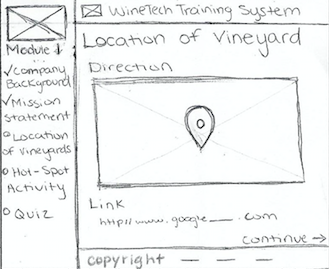 WineTech Training System
Module 1
✓Company
Background
✓Mission
Statement
Location
of Vineyards
Hot-Spot
Activity
Quiz
Location of Vineyard
Direction
Link
http://www.google___.com
continue →
copyright — — —